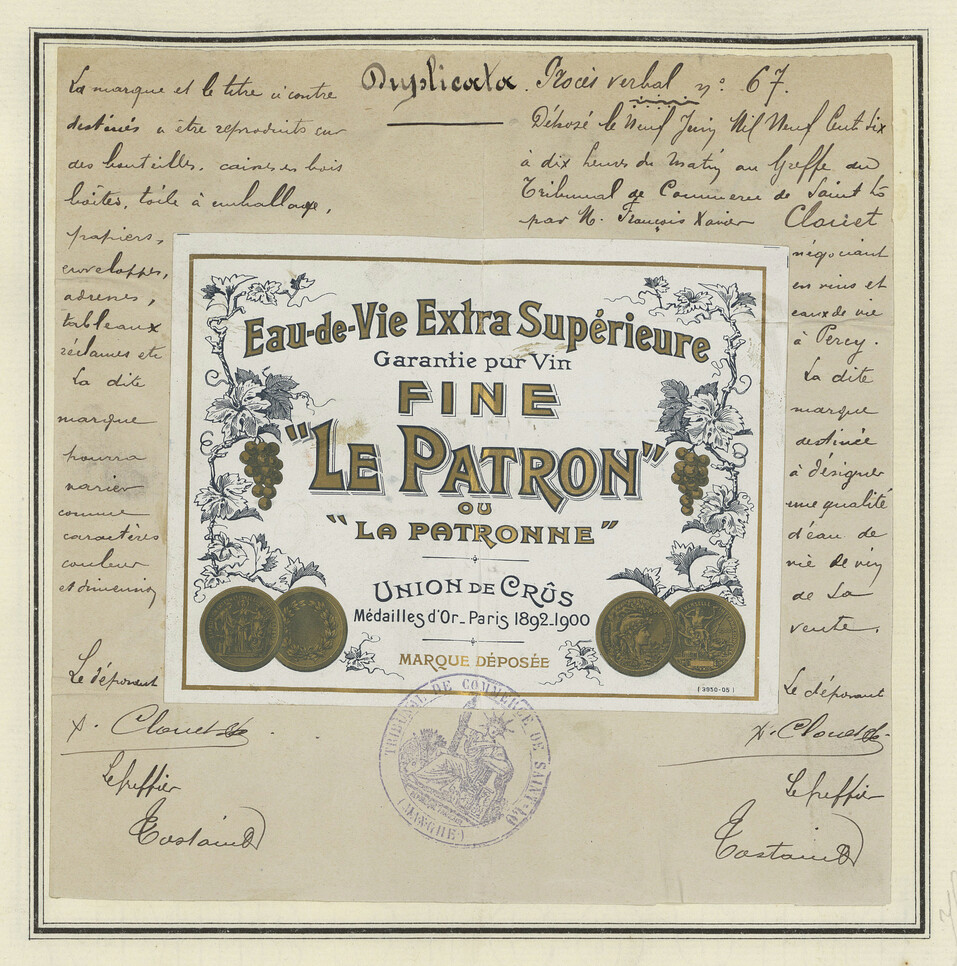 Duplicata. Procès verbal nº 67.
Déposé le Neuf Juin Mil Neuf Cent dix
à dix heures du matin au Greffe du
Tribunal de Commerce de Saint Lô
par M. François Xavier Clouet
négociant
en vins et
eaux de vie
à Percy.
La dite
marque
destinée
à désigner
une qualité
d'eau de
vie de vin
de sa
vente.
Le déposant
X. Clouet
Le Greffier
Tostain
La marque et le titre ci contre
destinés a être reproduits sur
des bouteilles, caisses en bois
boîtes, toile à emballage,
papiers,
enveloppes,
adresses,
tableaux
réclames etc
La dite
marque
pourra
varier
comme
caractères
couleur
et dimension
Le déposant
X. Clouet
Le Greffier
Tostain
Eau-de-Vie Extra Supérieure
Garantie pur Vin
FINE
"LE PATRON"
OU
"LA PATRONNE"
UNION DE CRÛS
Médailles d'Or_Paris 1892_1900
MARQUE DÉPOSÉE
(3950-05)
TRIBUNAL DE COMMERCE DE SAINT-LO
(MANCHE)